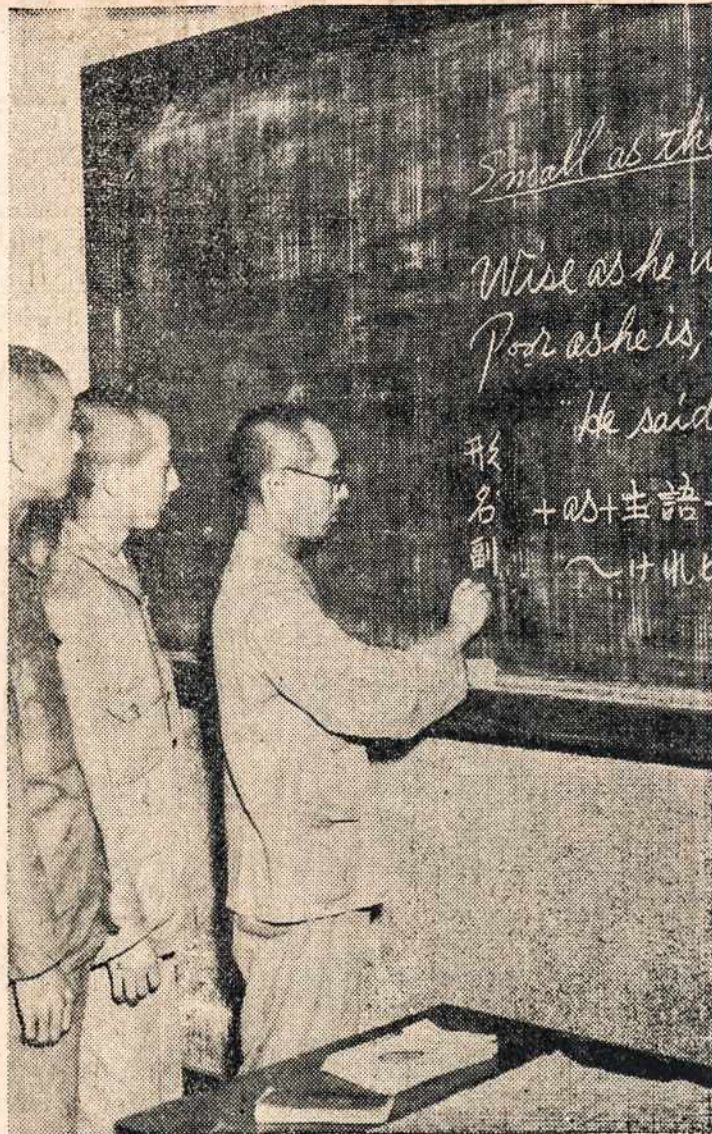 Small as the
Wise as he w
Poor as he is,
"He said
形
名 +as+主語+
副 ~けれど